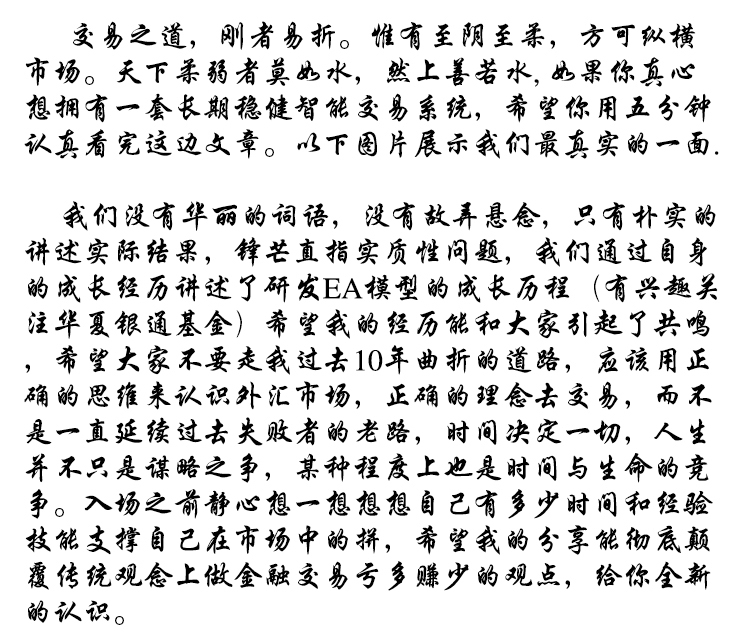 交易之道，刚者易折。惟有至阴至柔，方可纵横
市场。天下柔弱者莫如水，然上善若水,如果你真心
想拥有一套长期稳健智能交易系统，希望你用五分钟
认真看完这边文章。以下图片展示我们最真实的一面.
我们没有华丽的词语，没有故弄悬念，只有朴实的
讲述实际结果，锋芒直指实质性问题，我们通过自身
的成长经历讲述了研发EA模型的成长历程（有兴趣关
注华夏银通基金）希望我的经历能和大家引起了共鸣
，希望大家不要走我过去10年曲折的道路，应该用正
确的思维来认识外汇市场，正确的理念去交易，而不
是一直延续过去失败者的老路，时间决定一切，人生
并不只是谋略之争，某种程度上也是时间与生命的竞
争。入场之前静心想一想想想自己有多少时间和经验
技能支撑自己在市场中的拼，希望我的分享能彻底颠
覆传统观念上做金融交易亏多赚少的观点，给你全新
的认识。